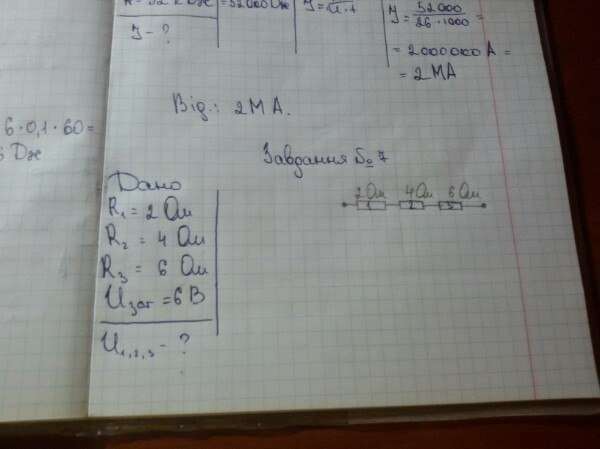 = 52000 Дж
J - ?
J = 52000 / 26·1000 =
= 2000000 А =
= 2 МА
Від.: 2 М А.
6·0,1·60 =
Дж
Завдання № 7
Дано
R₁ = 2 Ом
R₂ = 4 Ом
R₃ = 6 Ом
Uзаг = 6 В
U₁,₂,₃ - ?
2 Ом 4 Ом 6 Ом
1 2 3